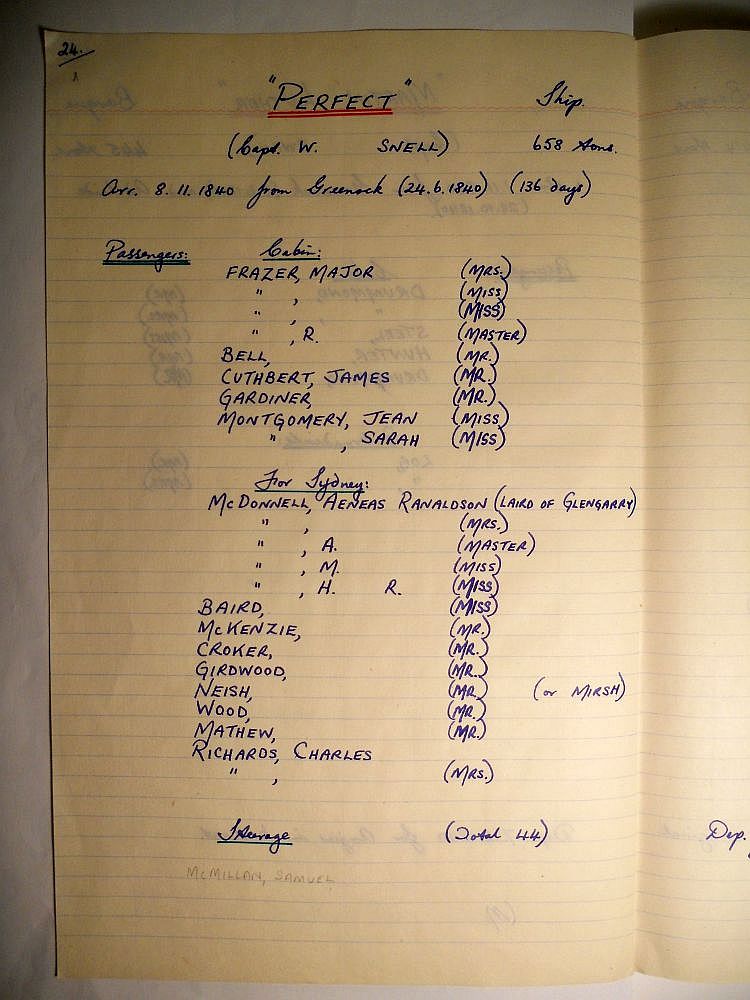 24.
"PERFECT" Ship.
(Capt. W. SNELL) 658 tons.
Arr. 8.11.1840 from Greenock (24.6.1840) (136 days)
Passengers: Cabin:
FRAZER, MAJOR (MRS.)
" , (MISS)
" , (MISS)
" , R. (MASTER)
BELL, (MR.)
CUTHBERT, JAMES (MR.)
GARDINER, (MR.)
MONTGOMERY, JEAN (MISS)
" , SARAH (MISS)
For Sydney:
McDONNELL, AENEAS RANALDSON (LAIRD OF GLENGARRY)
" , (MRS.)
" , A. (MASTER)
" , M. (MISS)
" , H. R. (MISS)
BAIRD, (MISS)
McKENZIE, (MR.)
CROKER, (MR.)
GIRDWOOD, (MR.)
NEISH, (MR.) (or MIRSH)
WOOD, (MR.)
MATHEW, (MR.)
RICHARDS, CHARLES
" , (MRS.)
Steerage (Total 44)
McMILLAN, SAMUEL
Dep.